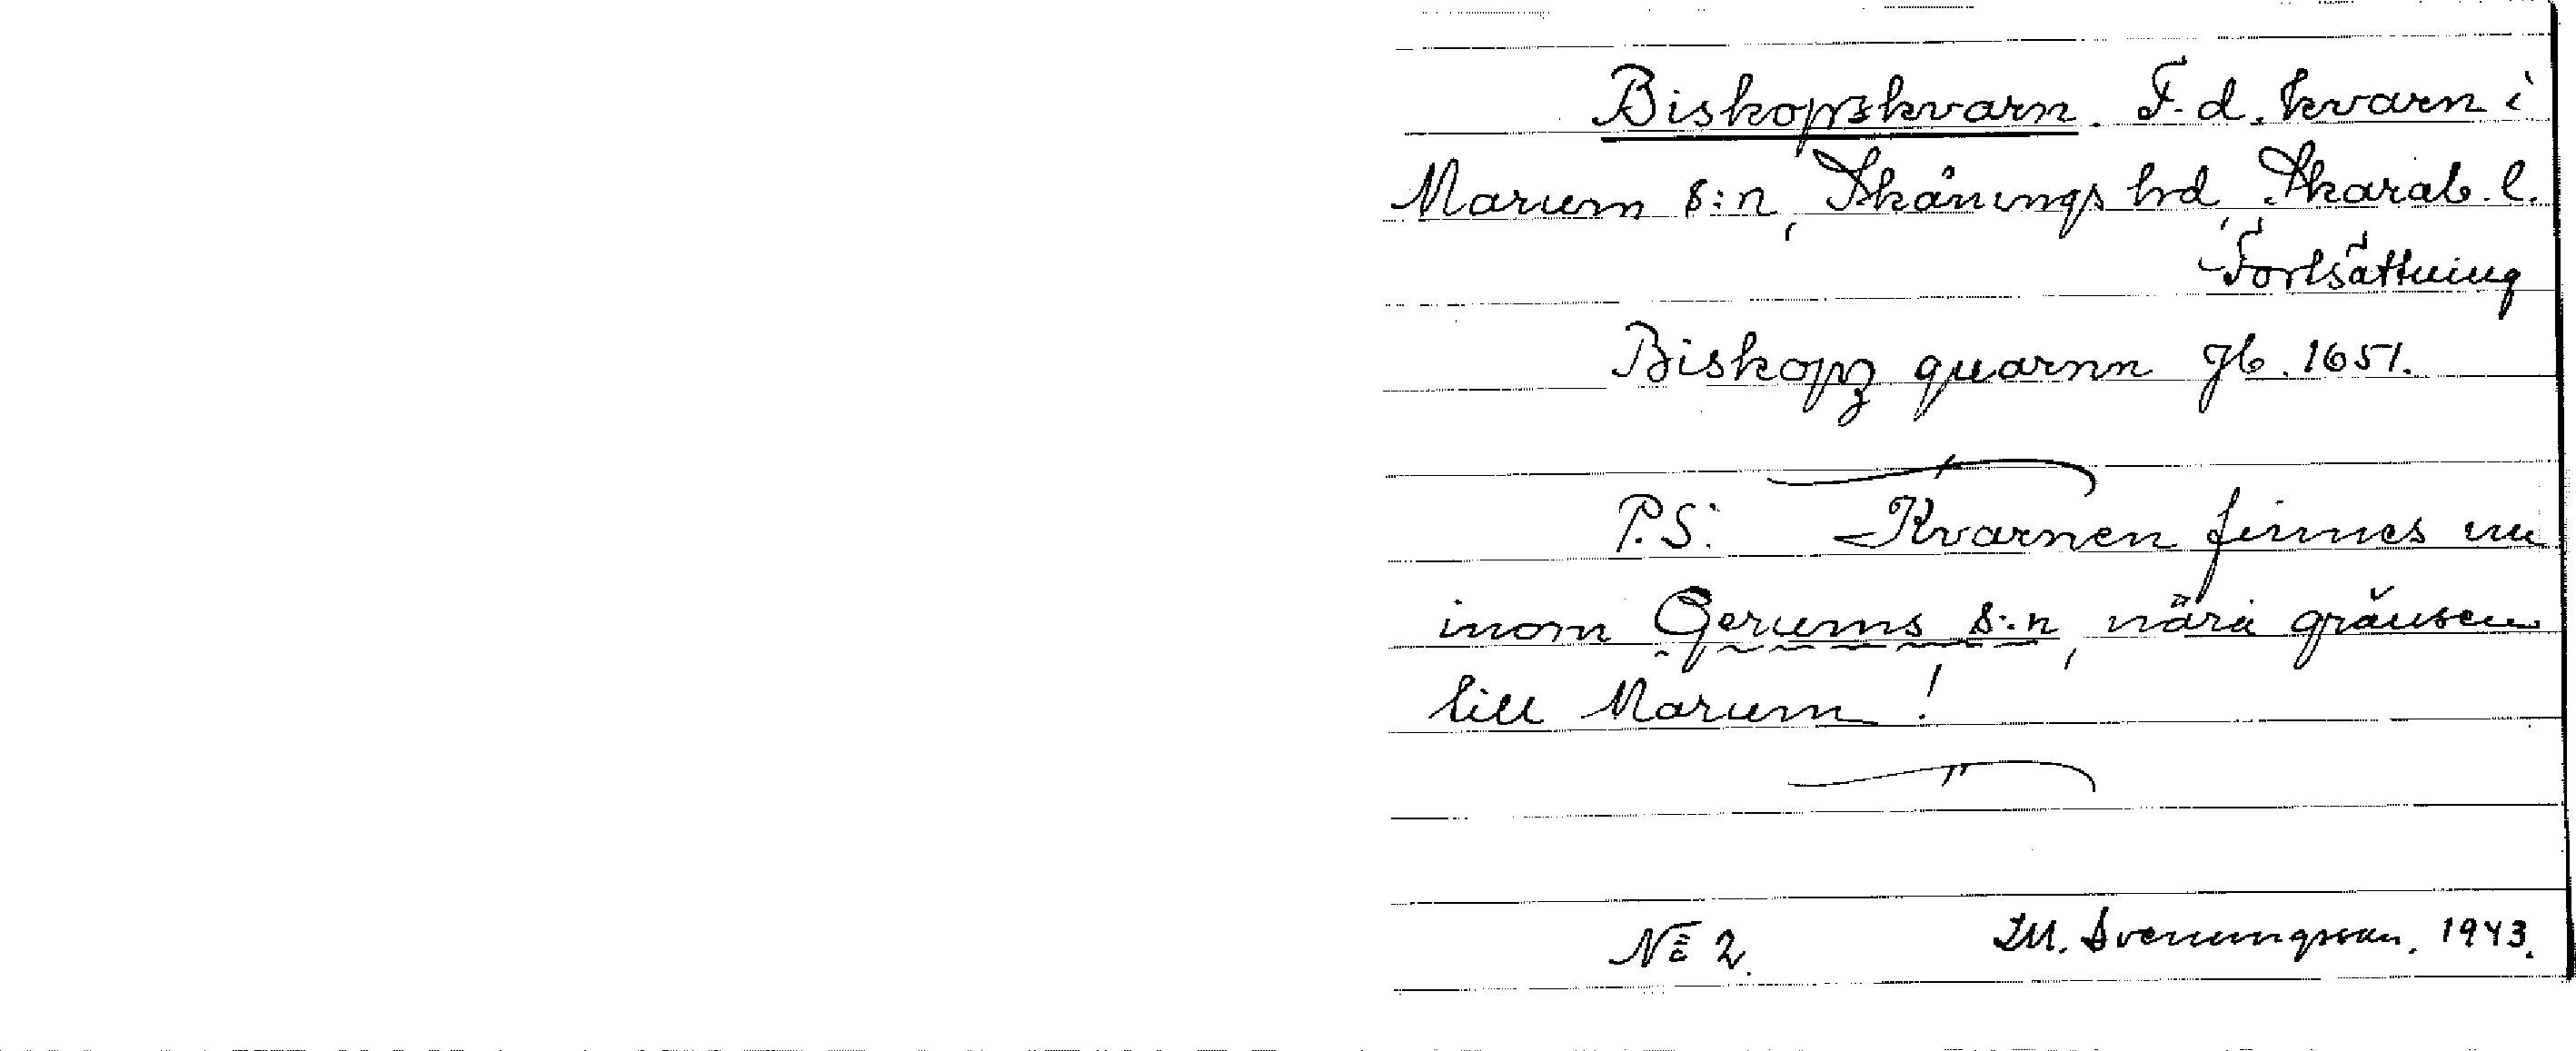 Biskopskvarn. F.d. kvarn i
Marum s:n, Skånings hd, Skarab. l.
Fortsättning
Biskopz quarnn Jb. 1651.
P.S. Kvarnen finnes nu
inom Gerums s:n, nära gränsen
till Marum!
No 2. M. Svenungsson. 1943.